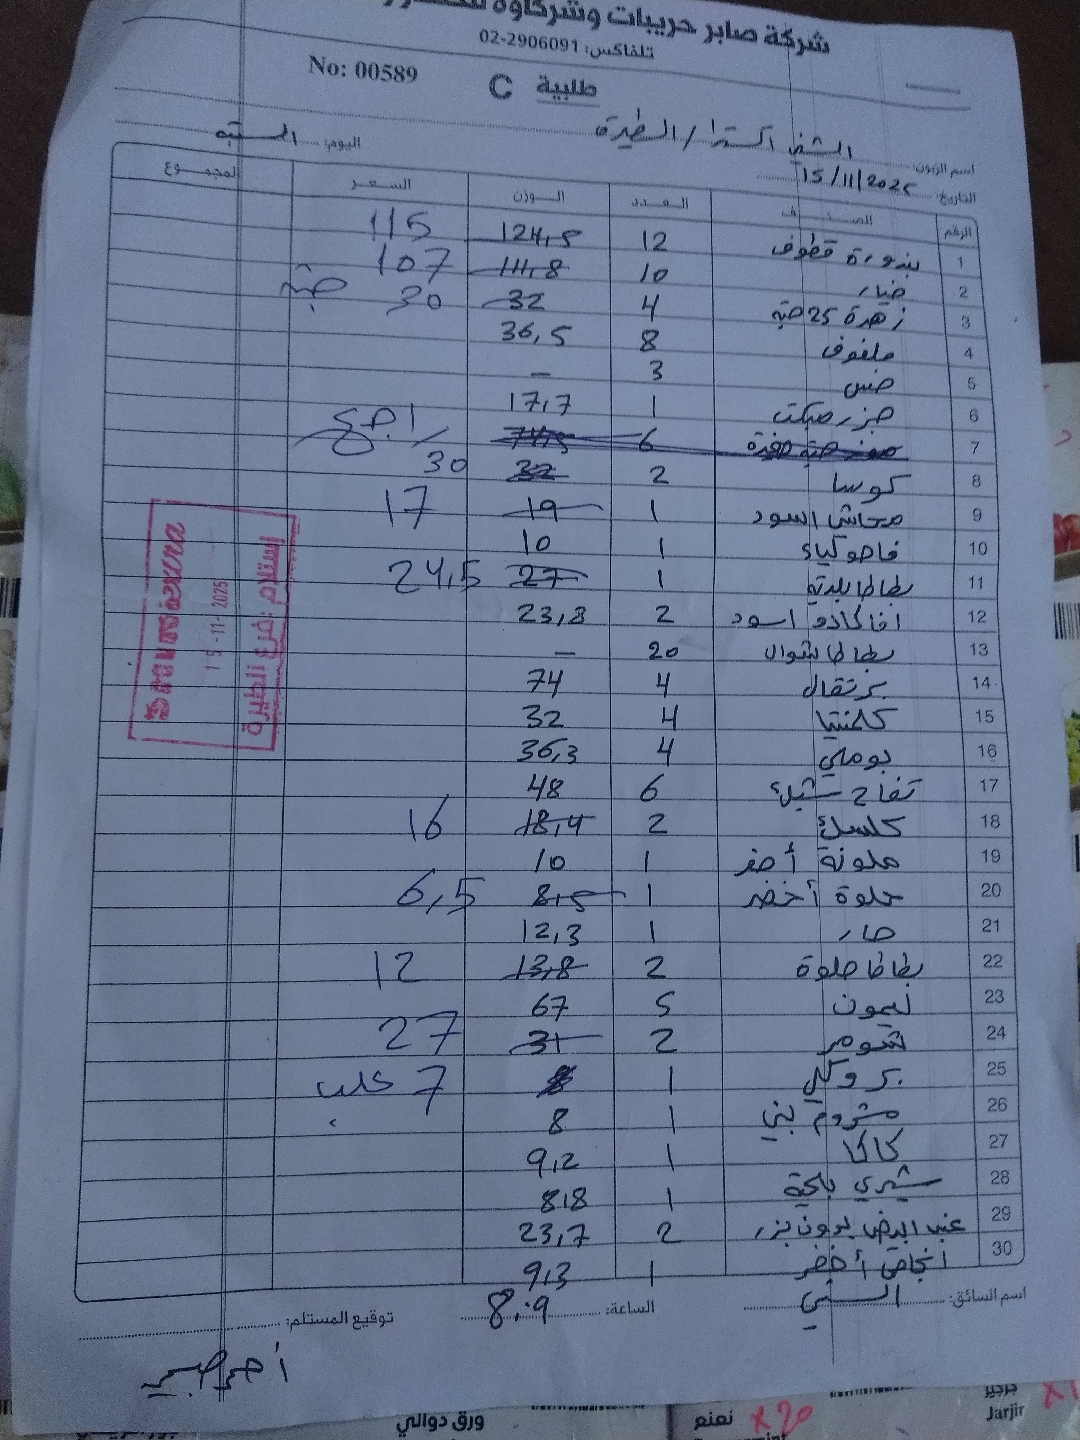 شركة صابر حريبات وشركاؤه
تلفاكس: 02-2906091
No: 00589
طلبية C
اسم الزبون: الشني اكسترا / الطيرة
اليوم: السبت
التاريخ: 15/11/2025
الرقم الصنف العدد الوزن السعر المجموع
1 بندورة قطوف 12 124,5 115
2 خيار 10 111,8 107
3 زهرة 25 حبة 4 32 30 حبة
4 ملفوف 8 36,5
5 خس 3 –
6 جزر مبكت 1 17,7
7 6 74,5 راجع
8 كوسا 2 32 30
9 محاشي اسود 1 19 17
10 فاصوليا 1 10
11 بطاطا بلدية 1 27 24,5
12 افاكادو اسود 2 23,8
13 بطاطا شوال 20 –
14 برتقال 4 74
15 كلمنتينا 4 32
16 بوملي 4 36,3
17 تفاح 6 48
18 2 18,4 16
19 ملونة أصفر 1 10
20 حلوة أخضر 1 8,5 6,5
21 حار 1 12,3
22 بطاطا حلوة 2 13,8 12
23 ليمون 5 67
24 شومر 2 31 27
25 بروكلي 1 8 7
26 مشروم بني 1 8
27 كاكا 1 9,2
28 شيري بلحة 1 8,8
29 عنب ابيض بدون بزر 2 23,7
30 انجاص أخضر 1 9,3
اسم السائق: السني
الساعة: 8:09
توقيع المستلم:
15-11-2025
ورق دوالي
نعنع
x20
جرجير
Jarjir